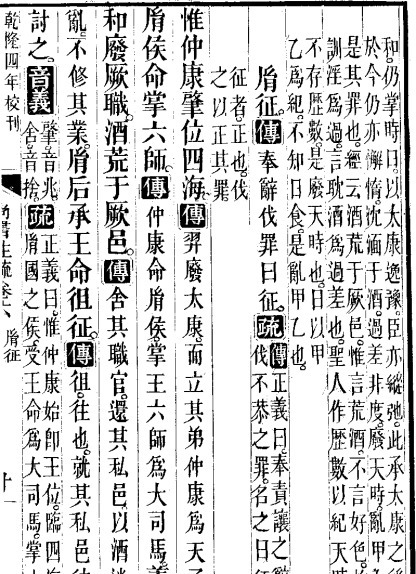 和。仍掌時日。以太康逸豫。臣亦縱弛。此承太康之後
於今仍亦懈惰。沈湎于酒。過差非度。廢天時。亂甲
是其罪也。經云酒荒于厥邑。惟言荒酒。不言好色。
訓淫爲過。言耽酒爲過差也。聖人作歷數以紀天時
不存歷數。是廢天時也。日以甲
乙爲紀。不知日食。是亂甲乙也。
胤征。傳奉辭伐罪曰征。疏傳正義曰。奉責讓之辭
伐不恭之罪。名之曰征
征者。正也。伐
之以正其罪
惟仲康肇位四海。傳羿廢太康。而立其弟仲康爲天子
胤侯命掌六師。傳仲康命胤侯。掌王六師爲大司馬。義
和廢厥職。酒荒于厥邑。傳舍其職官。還其私邑。以酒
亂。不修其業。胤后承王命徂征。傳徂。往也。就其私邑
討之。音義肇。音兆。
舍。音捨。疏正義曰。惟仲康始即王位。臨四海
胤國之侯。受王命爲大司馬。掌
乾隆四年校刊
尚書注疏卷六 胤征
十一